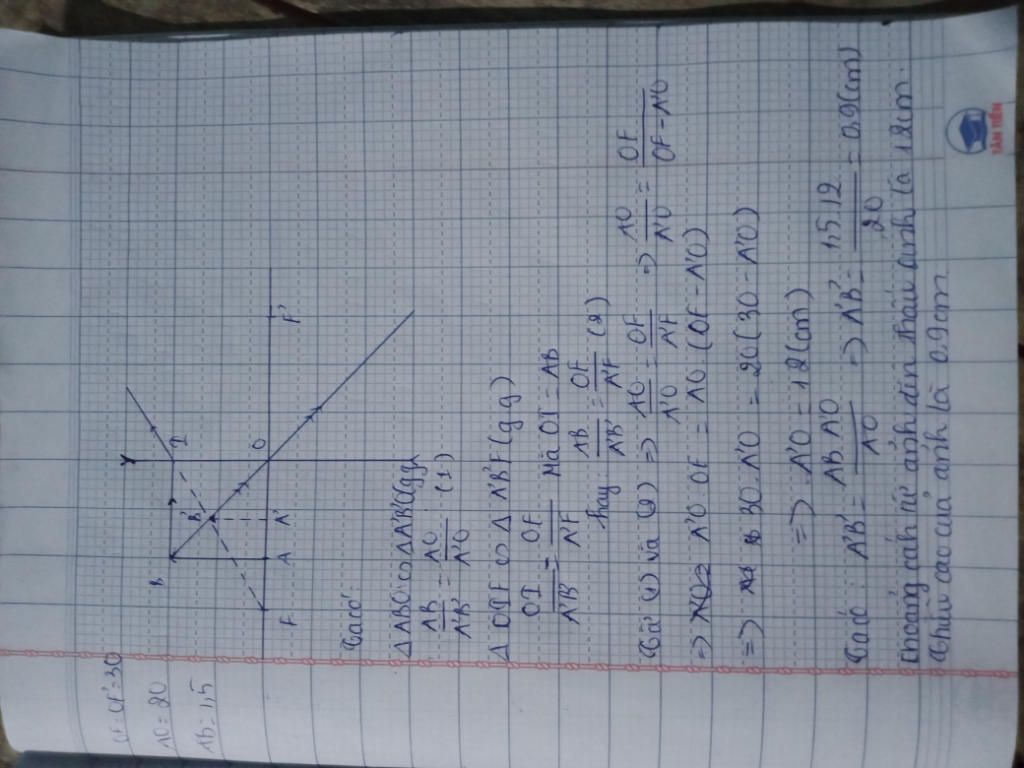 OF = OF' = 30
AO = 20
AB = 1,5
B
I
B'
F
A
A'
O
F'
Ta có:
Δ ABO ∽ Δ A'B'O (g.g)
AB/A'B' = AO/A'O (1)
Δ OIF ∽ Δ A'B'F (g.g)
OI/A'B' = OF/A'F Mà OI = AB
hay AB/A'B' = OF/A'F (2)
Từ (1) và (2) => AO/A'O = OF/A'F => AO/A'O = OF/OF - A'O
=> A'O OF = AO (OF - A'O)
=> 30. A'O = 20 (30 - A'O)
=> A'O = 12 (cm)
Ta có: A'B' = AB. A'O/AO => A'B' = 1,5.12/20 = 0,9 (cm)
Khoảng cách từ ảnh đến thấu kính là 12cm.
Chiều cao của ảnh là 0,9cm
TÂN TIẾN